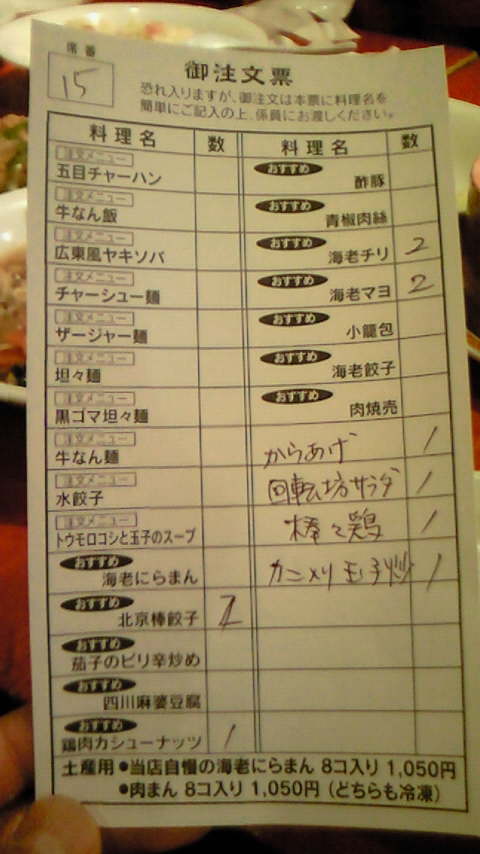 席番
15
御注文票
恐れ入りますが、御注文は本票に料理名を
簡単にご記入の上、係員にお渡しください。
料理名 数
注文メニュー
五目チャーハン
注文メニュー
牛なん飯
注文メニュー
広東風ヤキソバ
注文メニュー
チャーシュー麺
注文メニュー
ザージャー麺
注文メニュー
坦々麺
注文メニュー
黒ゴマ坦々麺
注文メニュー
牛なん麺
注文メニュー
水餃子
注文メニュー
トウモロコシと玉子のスープ
おすすめ
海老にらまん
おすすめ
北京棒餃子
おすすめ
茄子のピリ辛炒め
おすすめ
四川麻婆豆腐
おすすめ
鶏肉カシューナッツ 1
料理名 数
おすすめ
酢豚
おすすめ
青椒肉絲
おすすめ
海老チリ 2
おすすめ
海老マヨ 2
おすすめ
小籠包
おすすめ
海老餃子
おすすめ
肉焼売
からあげ 1
回転坊サラダ 1
棒々鶏 1
カニメリ玉子炒 1
土産用 ●当店自慢の海老にらまん 8コ入り 1,050円
●肉まん 8コ入り 1,050円(どちらも冷凍)